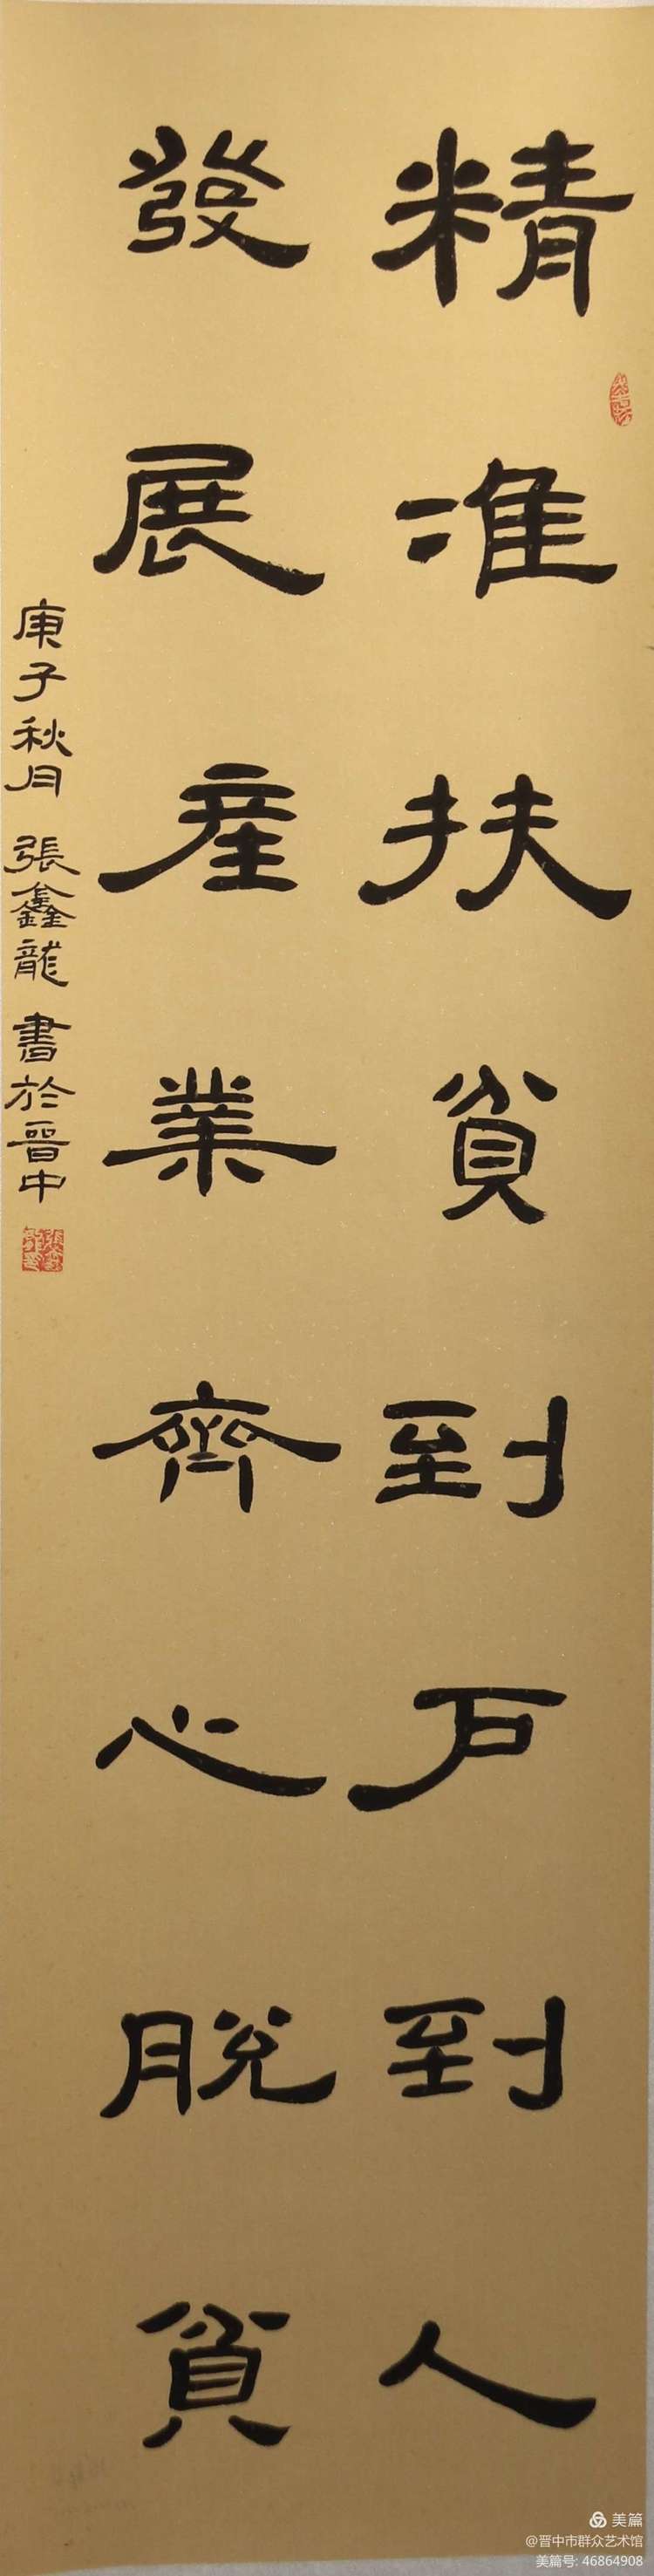 精准扶貧到户到人
發展産業齊心脱貧
庚子秋月 張鑫龍 書於晋中
美篇
@晋中市群众艺术馆
美篇号: 46864908